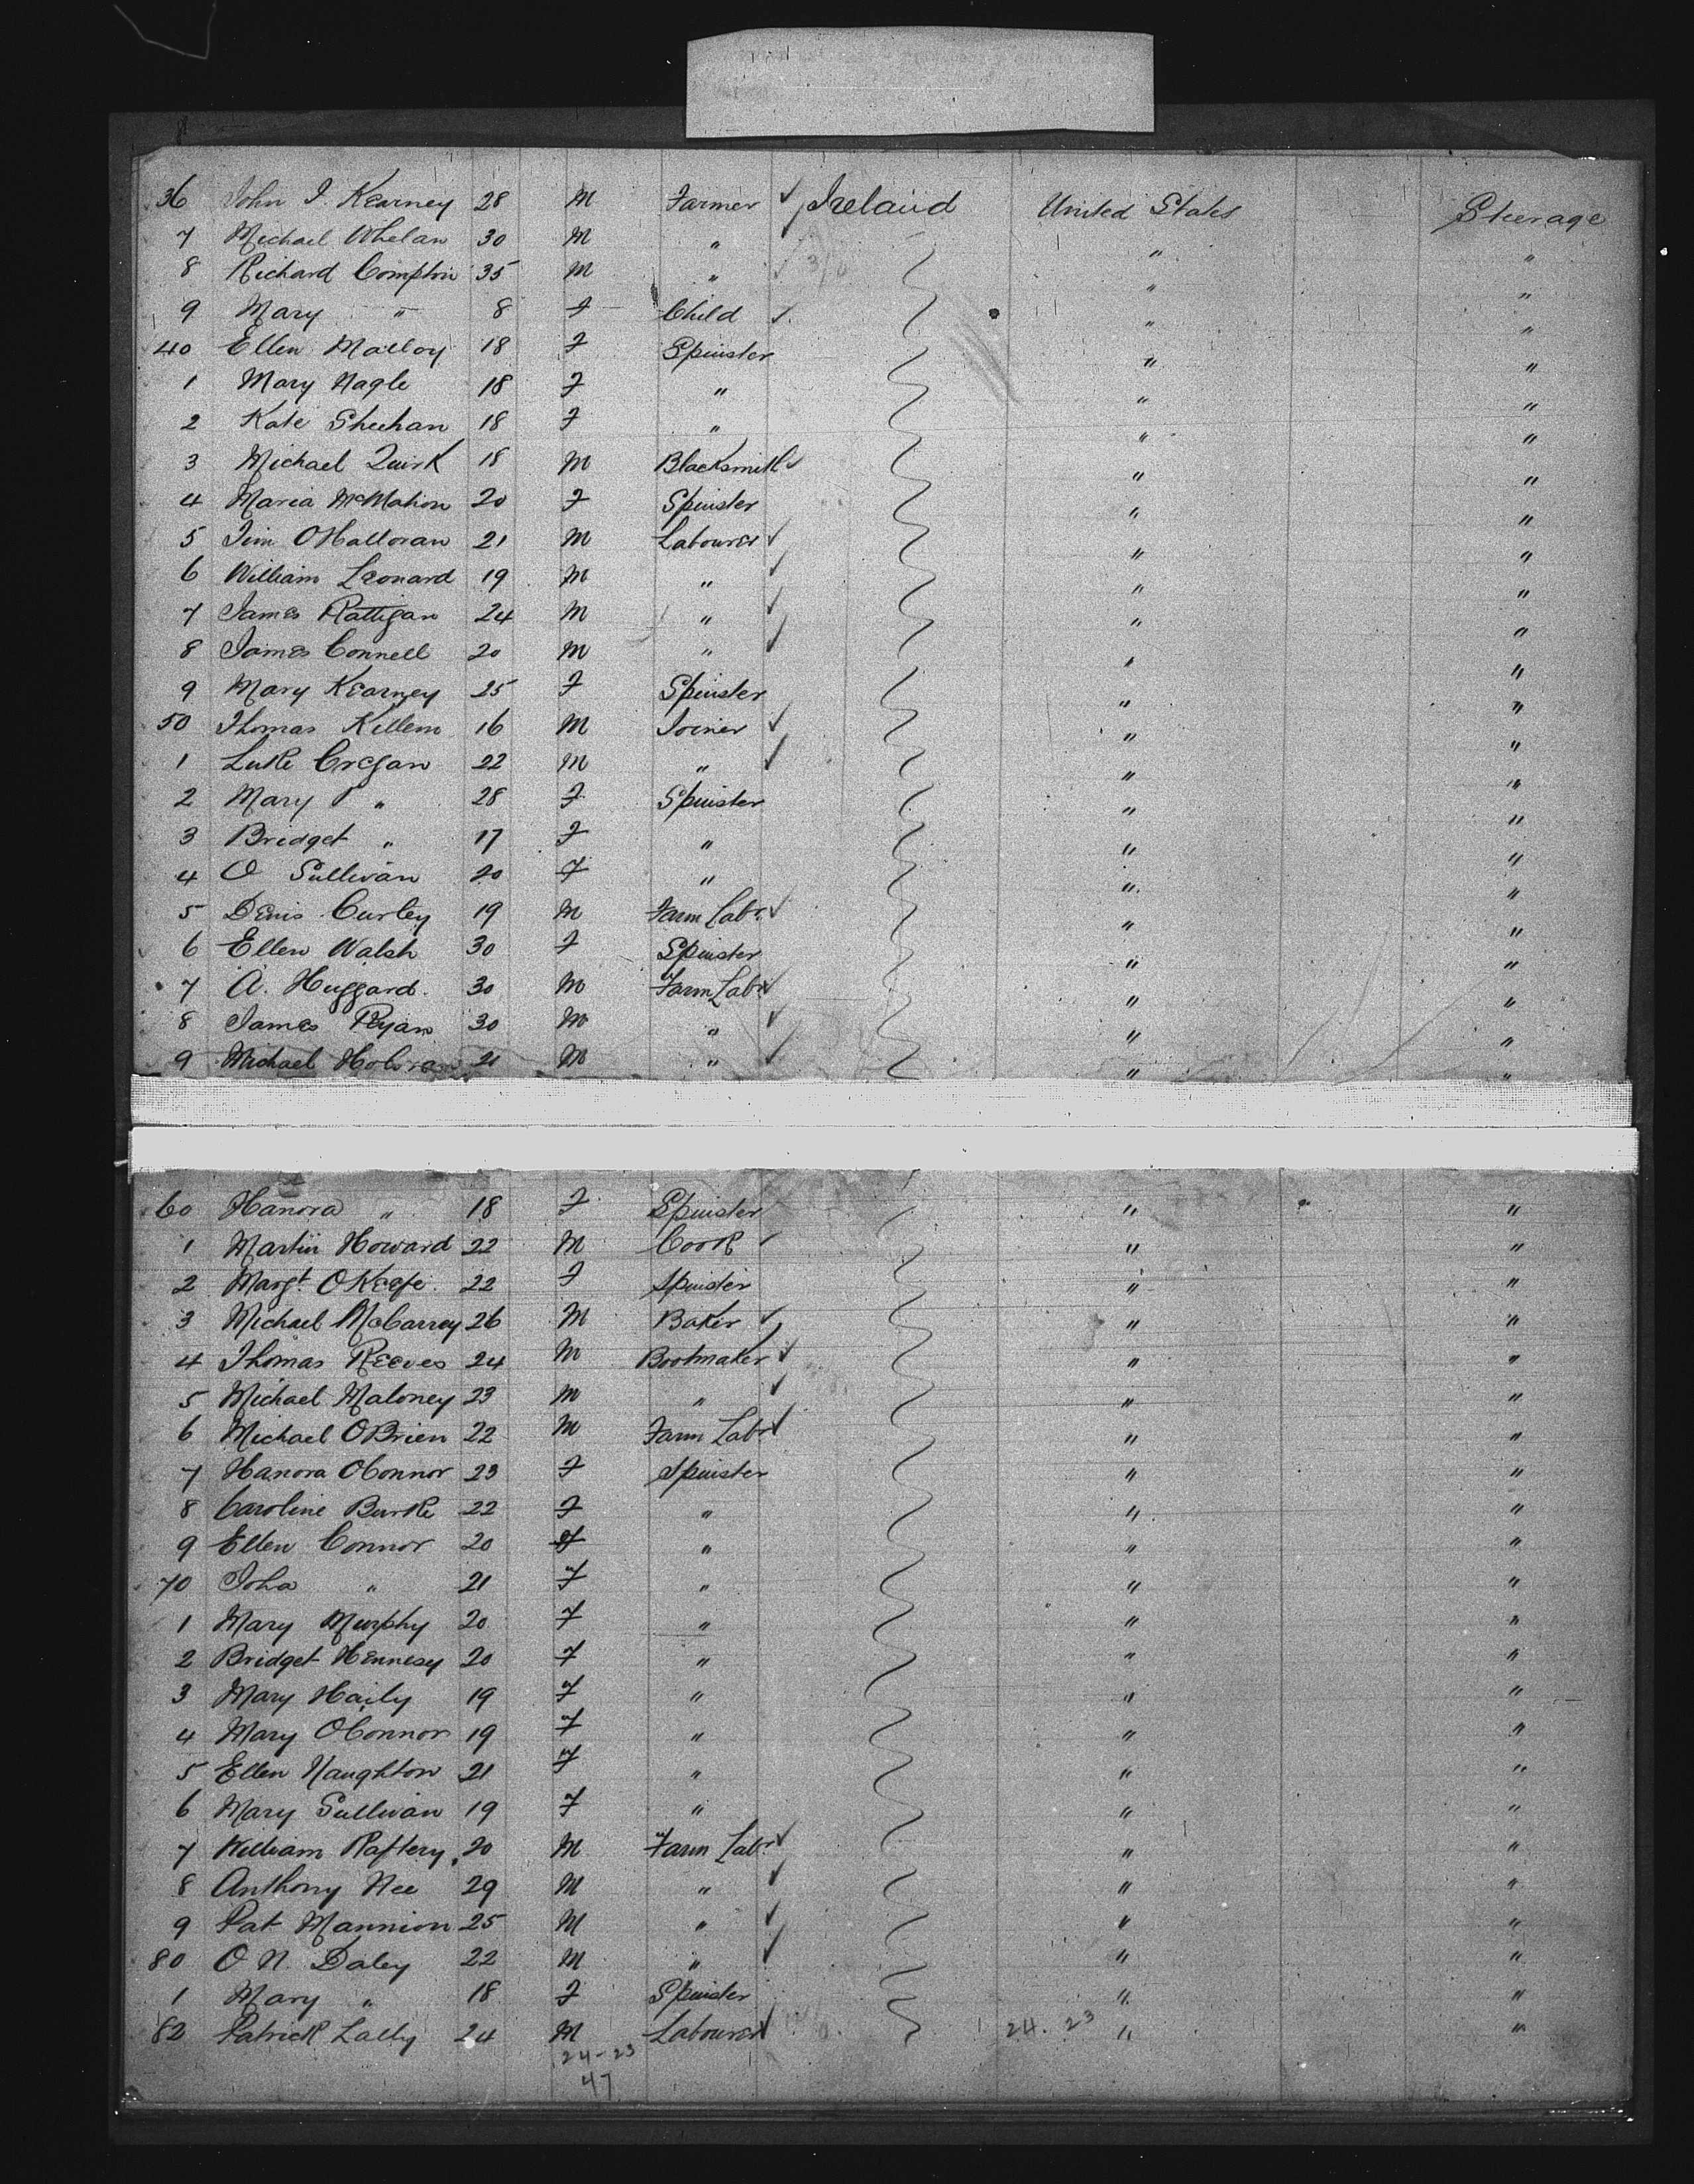 36 John J. Kearney 28 M Farmer ✓ Ireland United States Steerage
7 Michael Whelan 30 M " ✓ " "
8 Richard Comptin 35 M " ✓ " "
9 Mary " 8 F Child ✓ " "
40 Ellen Malloy 18 F Spinster " "
1 Mary Nagle 18 F " " "
2 Kate Sheehan 18 F " " "
3 Michael Quirk 18 M Blacksmith ✓ " "
4 Maria McMahon 20 F Spinster " "
5 Jim OHalloran 21 M Labourer ✓ " "
6 William Leonard 19 M " ✓ " "
7 James Rattigan 24 M " ✓ " "
8 James Connell 20 M " ✓ " "
9 Mary Kearney 25 F Spinster " "
50 Thomas Killem 16 M Joiner ✓ " "
1 Luke Cregan 22 M " ✓ " "
2 Mary " 28 F Spinster " "
3 Bridget " 17 F " " "
4 O Sullivan 20 F " " "
5 Denis Curley 19 M Farm Labr. ✓ " "
6 Ellen Walsh 30 F Spinster " "
7 A. Huggard. 30 M Farm Labr. ✓ " "
8 James Ryan 30 M " ✓ " "
9 Michael 21 M " ✓ " "
60 Hanora " 18 F Spinster " "
1 Martin Howard 22 M Cook ✓ " "
2 Margt. OKeefe. 22 F Spinster " "
3 Michael McCarrey 26 M Baker ✓ " "
4 Thomas Reeves 24 M Bootmaker ✓ " "
5 Michael Maloney 23 M " ✓ " "
6 Michael OBrien 22 M Farm Labr ✓ " "
7 Hanora OConnor 23 F Spinster " "
8 Caroline Burke 22 F " " "
9 Ellen Connor 20 F " " "
70 Joha " 21 F " " "
1 Mary Murphy 20 F " " "
2 Bridget Hennesy 20 F " " "
3 Mary Haily 19 F " " "
4 Mary OConnor 19 F " " "
5 Ellen Naughton 21 F " " "
6 Mary Sullivan 19 F " " "
7 William Raftery 20 M Farm Labr. ✓ " "
8 Anthony Nee 29 M " ✓ " "
9 Pat Mannion 25 M " ✓ " "
80 O N. Daley 22 M " ✓ " "
1 Mary " 18 F Spinster " "
82 Patrick Lally 24 M Labourer ✓ 24. 23 " "
24-23
47